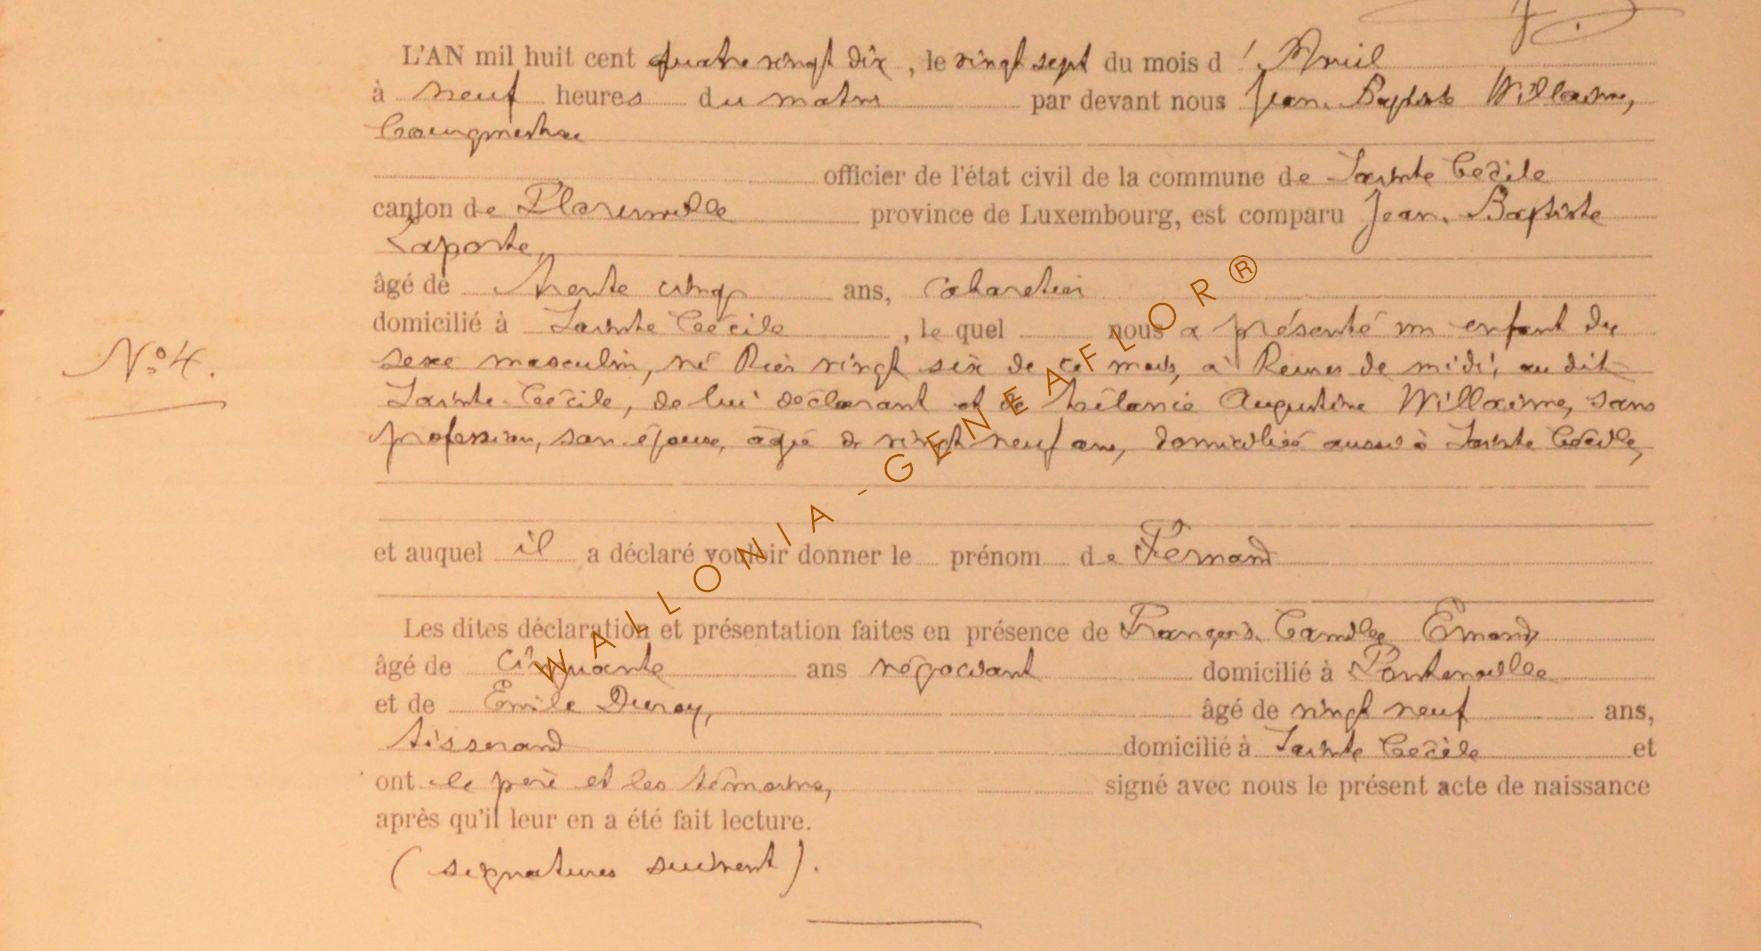 L'AN mil huit cent quatre vingt dix, le vingt sept du mois d'Avril
à neuf heures du matin par devant nous Jean-Baptiste Willaime,
bourgmestre
officier de l'état civil de la commune de Sainte Cécile
canton de Florenville province de Luxembourg, est comparu Jean-Baptiste
Laporte,
âgé de trente cinq ans, cabaretier
domicilié à Sainte Cécile, le quel nous a présenté un enfant du
sexe masculin, né hier vingt six de ce mois, à heures de midi, au dit
N° 4.
Sainte-Cécile, de lui déclarant et de Augustine Willaime, sans
profession, son épouse, âgée de vingt neuf ans, domiciliée aussi à Sainte Cécile,
et auquel il a déclaré vouloir donner le prénom de Fernand
Les dites déclaration et présentation faites en présence de François Camille
âgé de cinquante ans négociant domicilié à Fontenoille
et de Emile Duroy, âgé de vingt neuf ans,
tisserand domicilié à Sainte Cécile et
ont le père et les témoins, signé avec nous le présent acte de naissance
après qu'il leur en a été fait lecture.
(signatures suivent).
WALLONIA-GENEAFLOR®